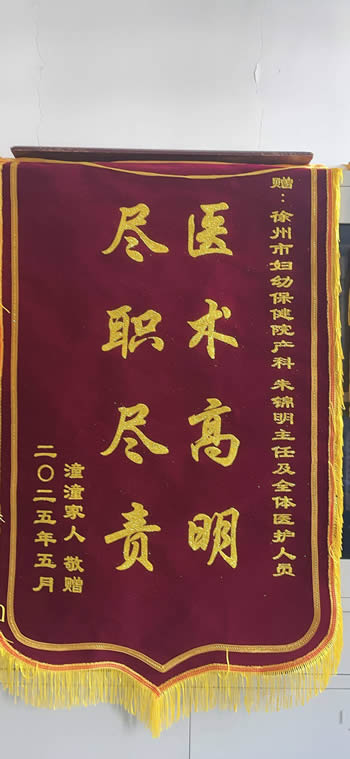 赠：徐州市妇幼保健院产科 朱锦明主任及全体医护人员
医术高明
尽职尽责
潼潼家人 敬赠
二〇二五年五月